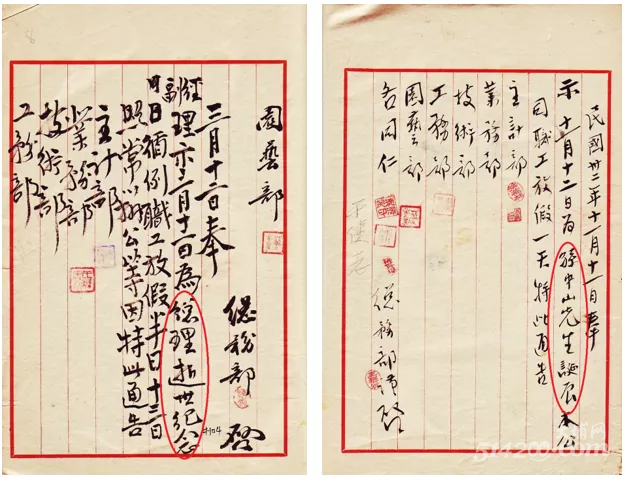 民國卅二年十一月十一日奉
示十一月十二日為孫中山先生誕辰本公
司職工放假一天特此通告
主計部
業務部
技術部
工務部
園藝部
各同仁
總務部謹啓
園藝部
總務部 啓
三月十二日奉
經副理示三月十二日為總理逝世紀念
日循例職工放假半日十三日
照常辦公等因特此通告
主計部
業務部
技術部
工務部
514200.com